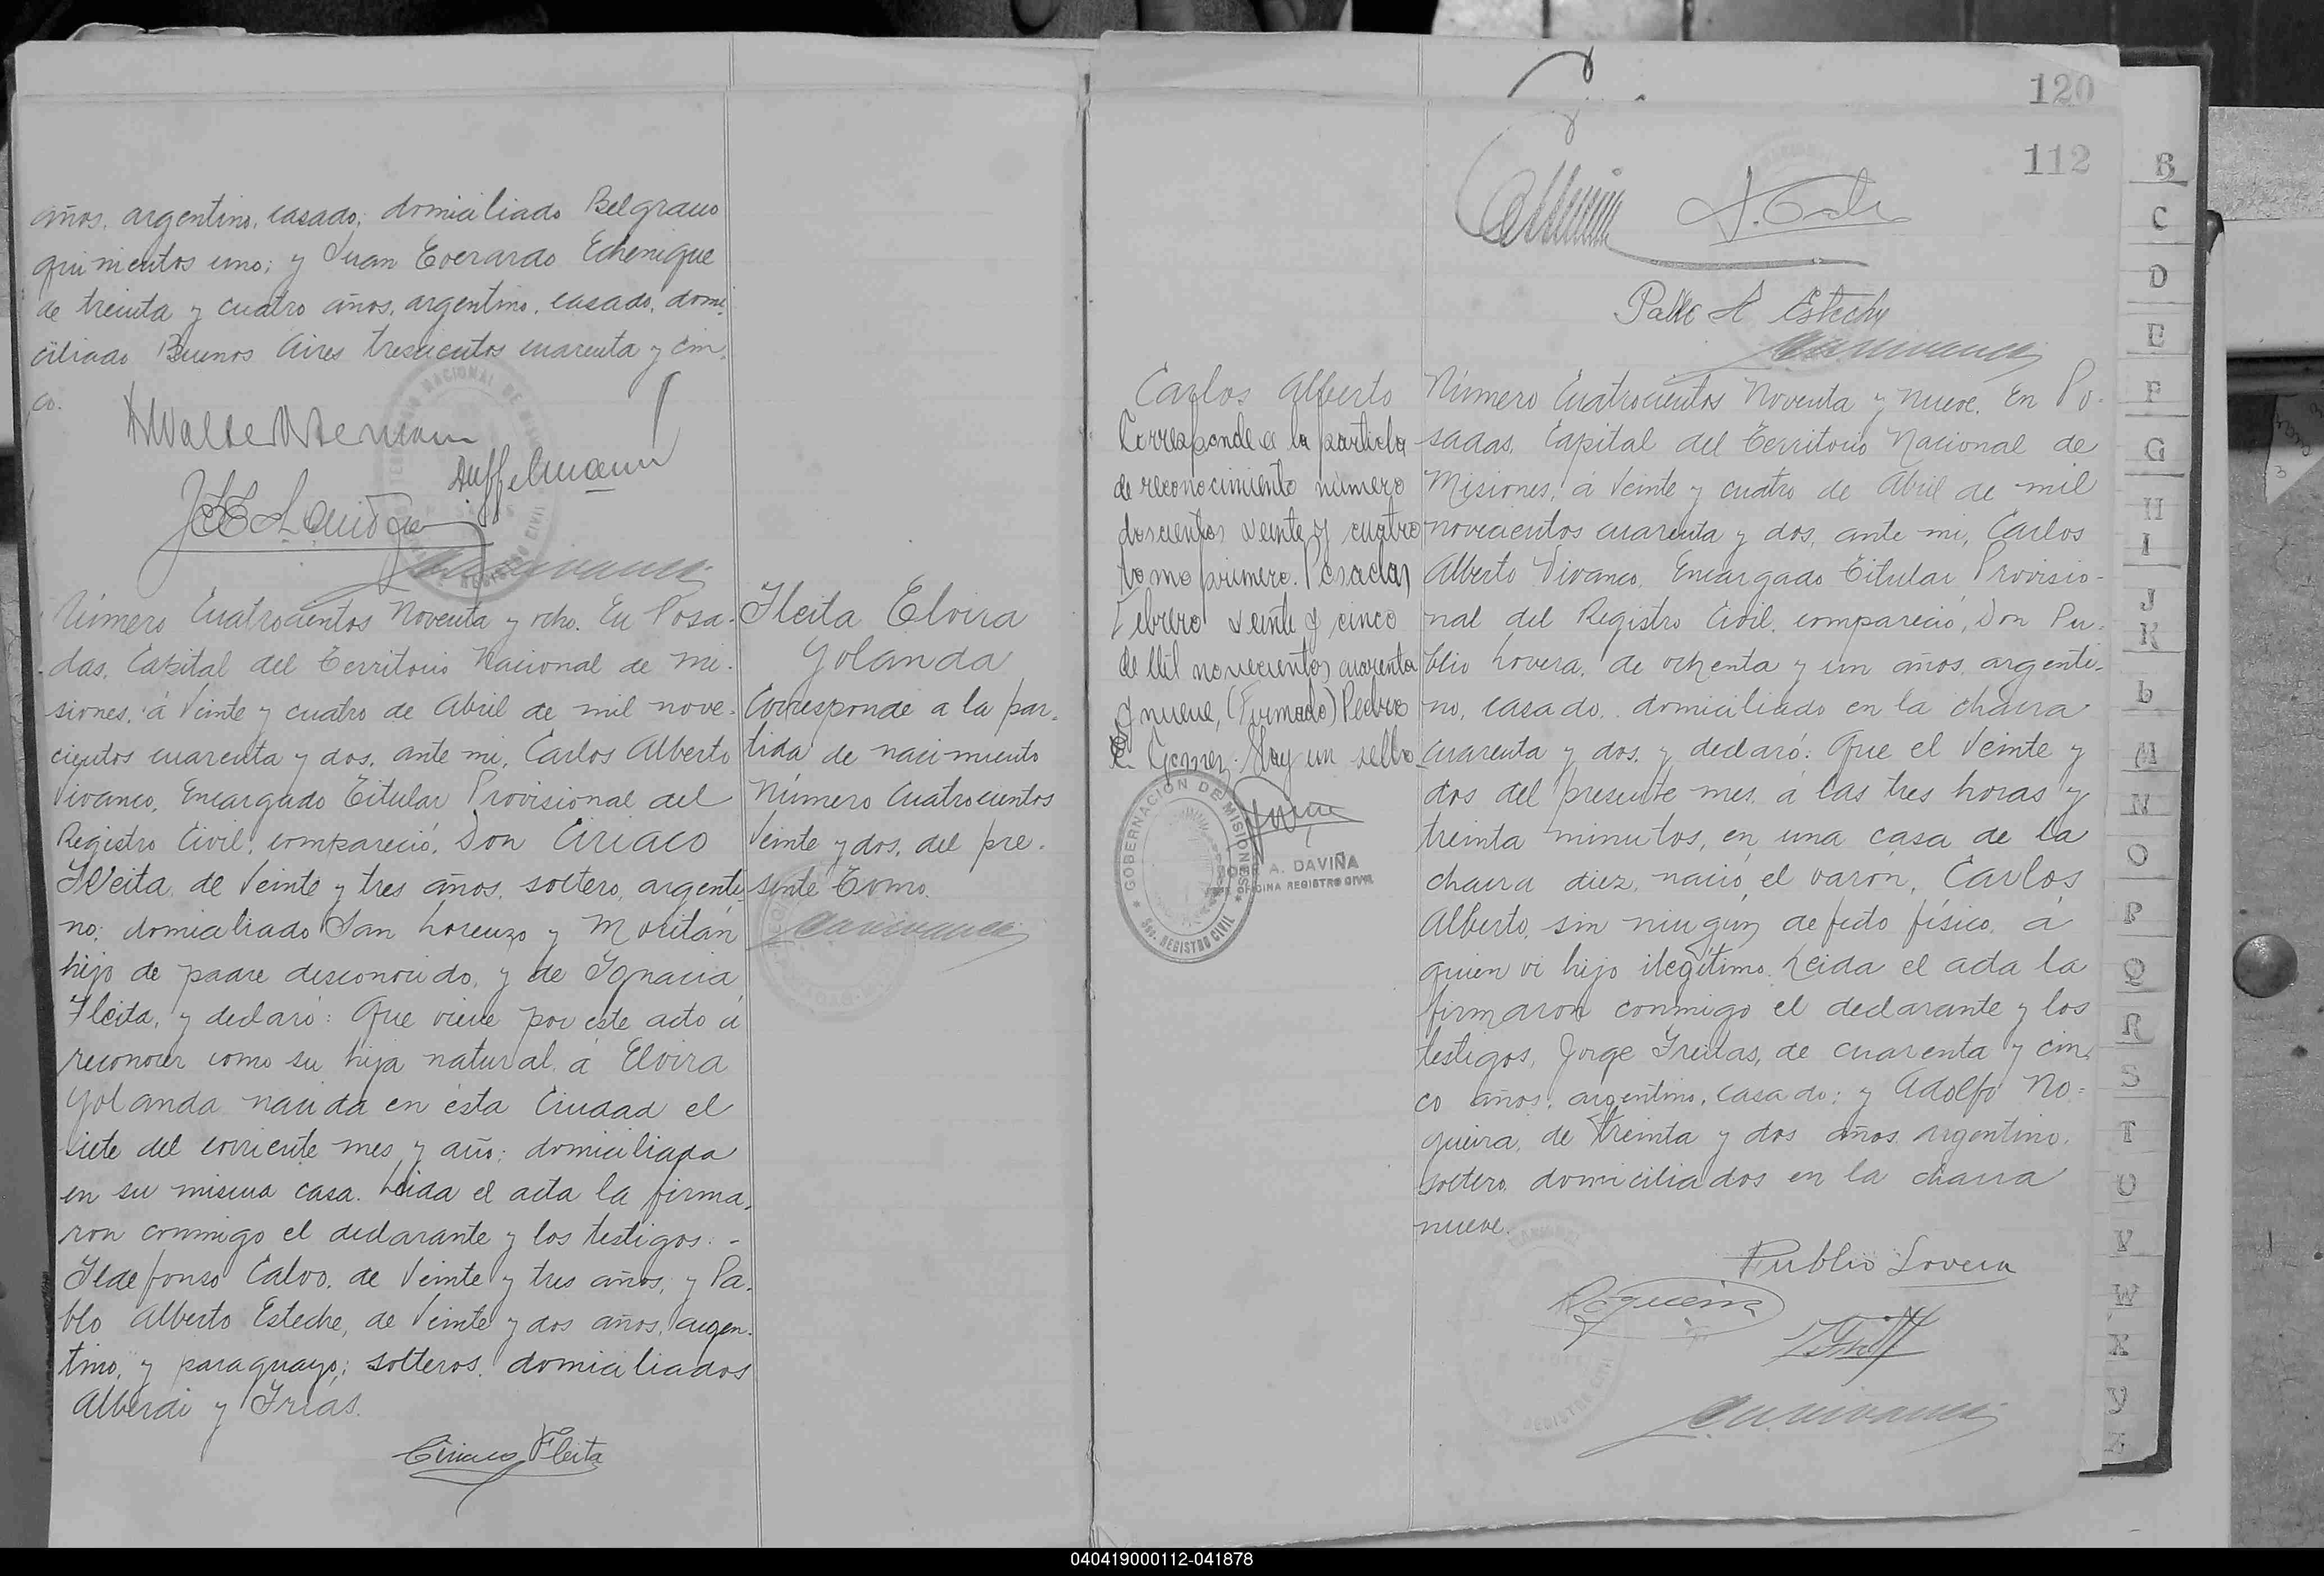 años, argentino, casado, domiciliado Belgrano
quinientos uno; y Juan Everardo Echenique
de treinta y cuatro años, argentino, casado, domi-
ciliado Buenos Aires trescientos cuarenta y cin-
co.
Número Cuatrocientos Noventa y ocho. En Posa-
das, Capital del Territorio Nacional de Mi-
siones, á Veinte y cuatro de Abril de mil nove-
cientos cuarenta y dos, ante mi, Carlos Alberto
Vivanco, Encargado Titular Provisional del
Registro Civil, compareció, Don Ciriaco
Fleita, de Veinte y tres años, soltero, argenti-
no; domiciliado San Lorenzo y Moritán
hijo de padre desconocido, y de Ignacia
Fleita, y declaró: Que viene por este acto á
reconocer como su hija natural, á Elvira
Yolanda nacida en ésta Ciudad el
siete del corriente mes y año; domiciliada
en su misma casa. Leida el acta la firma-
ron conmigo el declarante y los testigos. -
Ildefonso Calvo, de Veinte y tres años, y Pa-
blo Alberto Esteche, de Veinte y dos años, argen-
tino, y paraguayo; solteros, domiciliados
Alberdi y Frias.
Ciriaco Fleita
Fleita Elvira
Yolanda
Corresponde a la par-
tida de nacimiento
Número Cuatrocientos
Veinte y dos, del pre-
sente Tomo.
120
112
Pablo A Esteche
Carlos Alberto
Corresponde a la partida
de reconocimiento número
doscientos veinte y cuatro
tomo primero. Posadas
Febrero veinte y cinco
de Mil novecientos cuarenta
y nueve, (Firmado) Pedro
Gomez. Hay un sello
GOBERNACIÓN DE MISIONES
Sec. REGISTRO CIVIL
JOSE A. DAVIÑA
JEFE OFICINA REGISTRO CIVIL
Número Cuatrocientos Noventa y nueve. En Po-
sadas, Capital del Territorio Nacional de
Misiones, á Veinte y cuatro de Abril de mil
novecientos cuarenta y dos, ante mi, Carlos
Alberto Vivanco, Encargado Titular Provisio-
nal del Registro Civil, compareció, Don Pu-
blio Lovera, de ochenta y un años, argenti-
no, casado, domiciliado en la chacra
cuarenta y dos, y declaró: Que el Veinte y
dos del presente mes, á las tres horas y
treinta minutos, en una casa de la
chacra diez, nació el varón, Carlos
Alberto, sin ningún defecto físico, á
quien vi hijo ilegítimo. Leida el acta la
firmaron conmigo el declarante y los
testigos, Jorge Freitas, de cuarenta y cin-
co años, argentino, casado; y Adolfo No-
gueira, de treinta y dos años, argentino,
soltero, domiciliados en la chacra
nueve.
Publio Lovera
B
C
D
E
F
G
H
I
J
K
L
M
N
O
P
Q
R
S
T
U
V
W
X
Y
Z
040419000112-041878